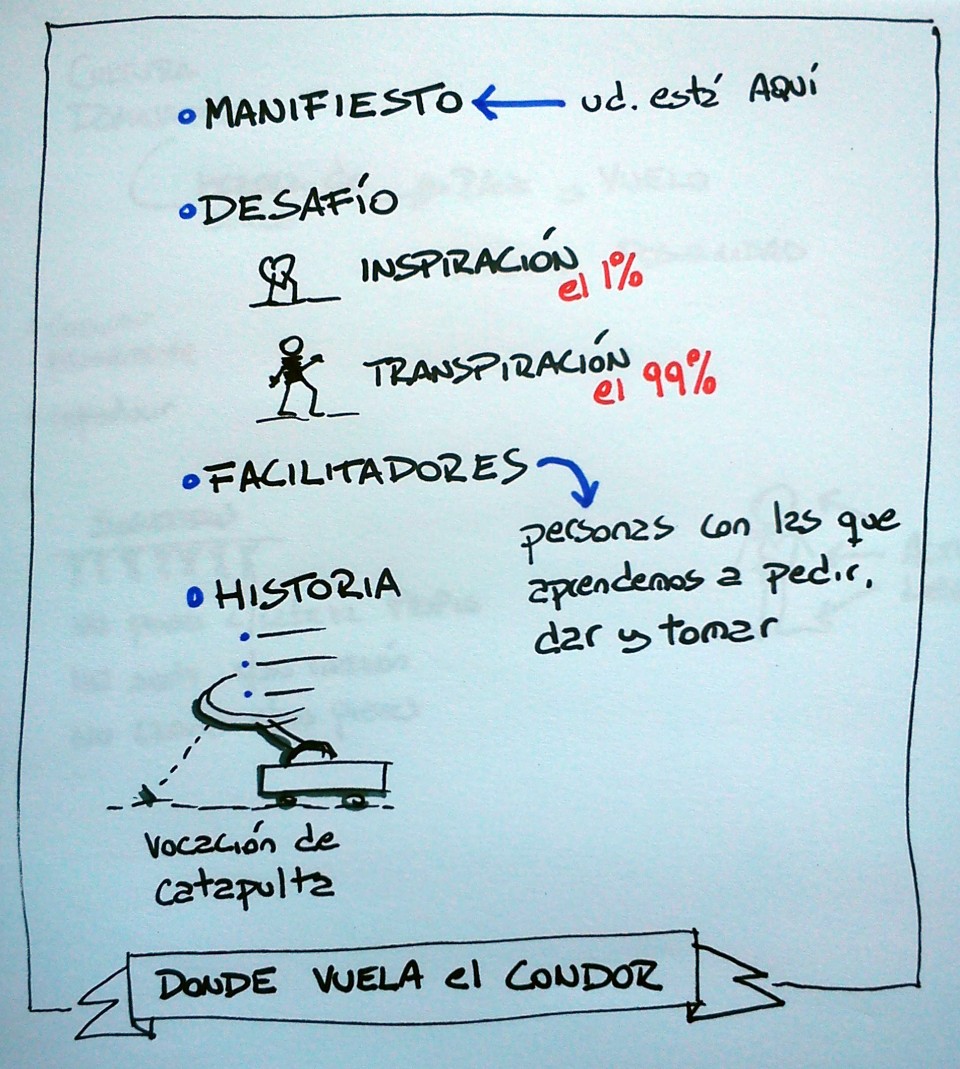 • MANIFIESTO ← ud. está AQUÍ
• DESAFÍO
INSPIRACIÓN
el 1%
TRANSPIRACIÓN
el 99%
• FACILITADORES
personas con las que
aprendemos a pedir,
dar y tomar
• HISTORIA
Vocación de
catapulta
DONDE VUELA el CONDOR